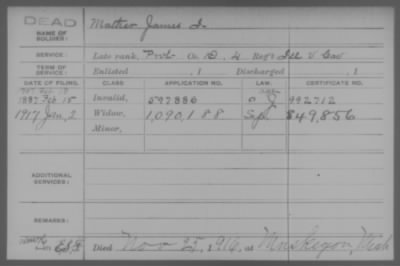 DEAD
NAME OF SOLDIER: Mather James I.
SERVICE: Late rank, Prvt Co. D, 4 Reg't Ill V Cav
TERM OF SERVICE: Enlisted , 1 Discharged , 1
DATE OF FILING. CLASS APPLICATION NO. LAW. CERTIFICATE NO.
1887 Feb 18 Invalid, 597880 992712
1917 Jan, 2 Widow, 1,090,188 849,856
Minor,
ADDITIONAL SERVICES:
REMARKS:
Died Nov 25, 1916, at Muskegon, Mich